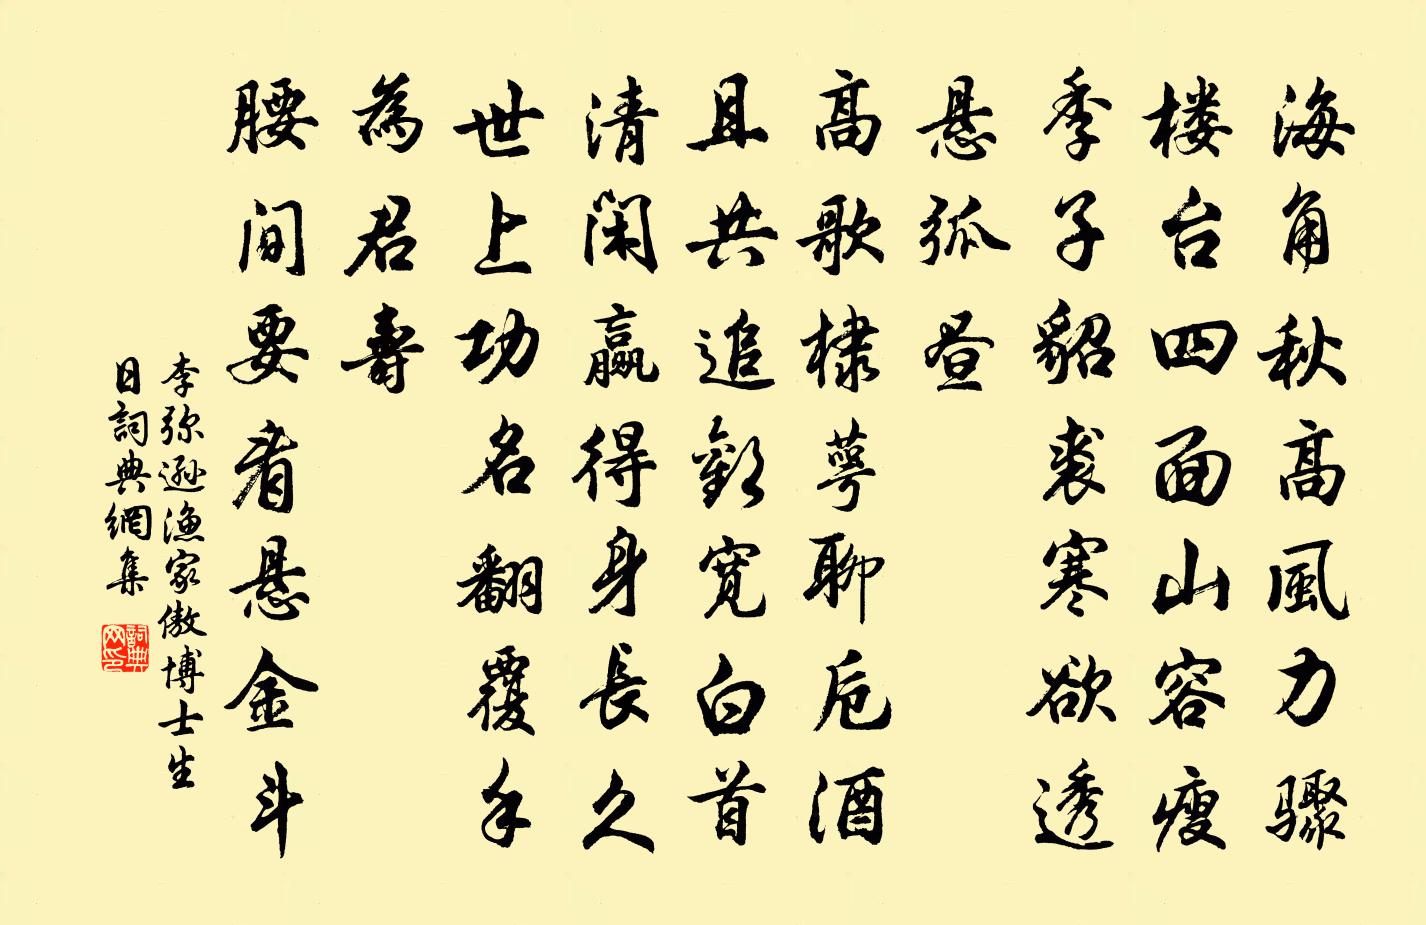 海角秋高風力驟
楼台四面山容瘦
季子貂裘寒欲透
悬弧昼
高歌棣萼聊卮酒
且共追歡宽白首
清闲赢得身長久
世上功名翻覆手
為君壽
腰间要看悬金斗
李弥逊漁家傲博士生
日詞典網集